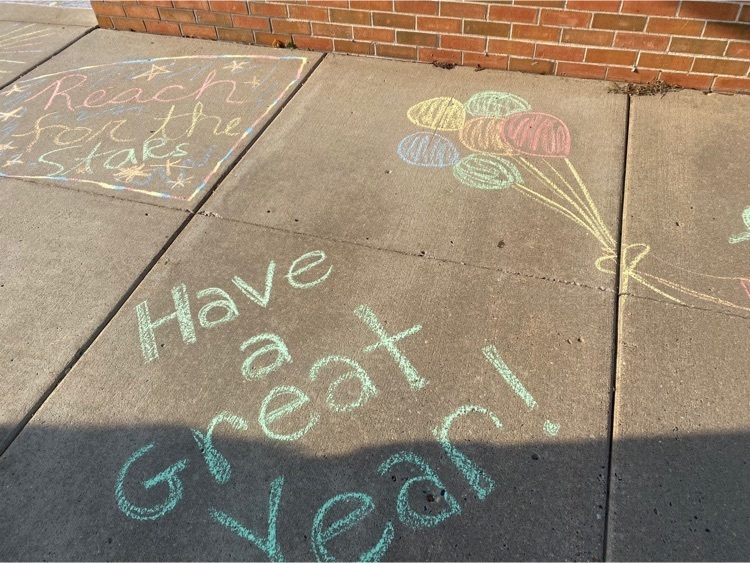 Reach
for the
Stars
Have
a
Great
Year!